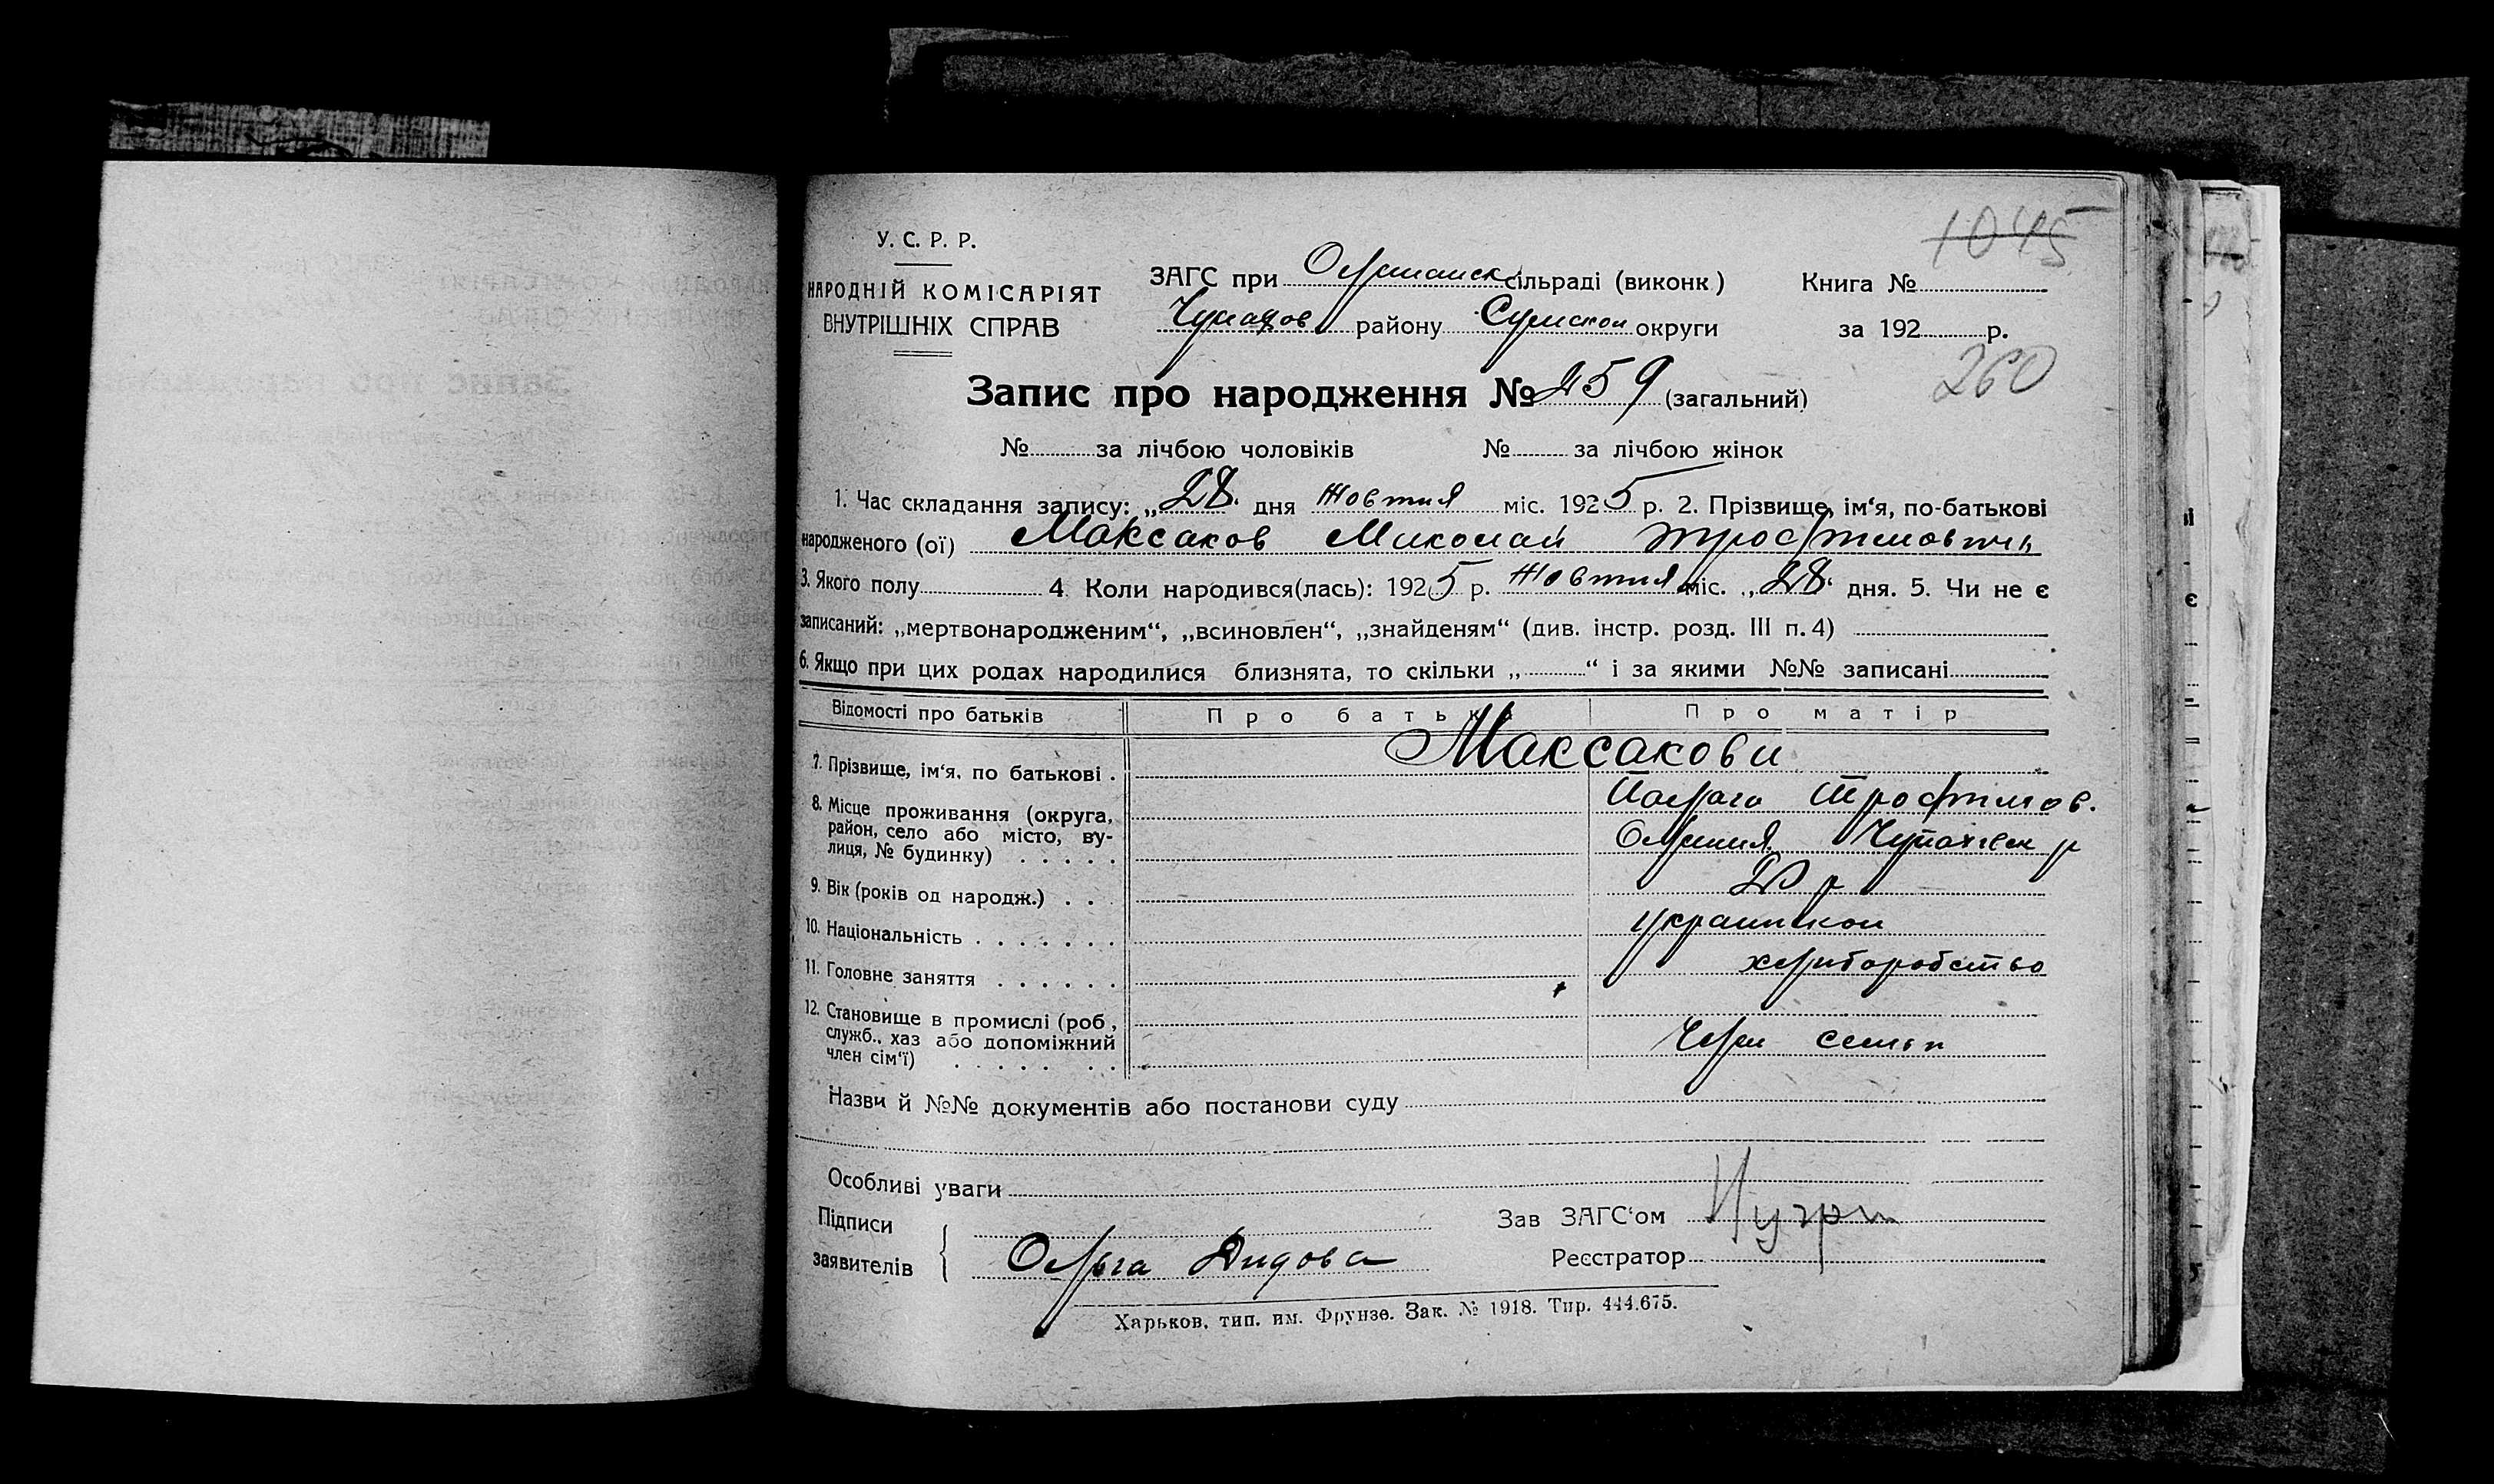 1045
У. С. Р. Р.
НАРОДНІЙ КОМІСАРІЯТ
ВНУТРІШНІХ СПРАВ
ЗАГС при Ольшанск сільраді (виконк )
Чупахов району Сумской округи
Книга №
за 192 р.
260
Запис про народження № 259 (загальний)
№ за лічбою чоловіків № за лічбою жінок
1. Час складання запису: „28" дня жовтня міс. 1925 р. 2. Прізвище, ім‘я, по-батькові
народженого (ої) Максаков Миколай Трофимович
3. Якого полу 4. Коли народився(лась): 1925 р. жовтня міс. „28" дня. 5. Чи не є
записаний: „мертвонародженим“, „всиновлен“, „знайденям“ (див. інстр. розд. III п. 4)
6. Якщо при цих родах народилися близнята, то скільки „ “ і за якими №№ записані
Відомості про батьків Про батька Про матір
7. Прізвище, ім‘я, по батькові . Максакови
Палрага Трофимов.
8. Місце проживання (округа, район, село або місто, вулиця, № будинку) . . . . .
Ольшня Чупахівск р
9. Вік (років од народж.) . . . 20 р
10. Національність . . . . . . .
11. Головне заняття . . . . . . хлиборобство
12. Становище в промислі (роб , служб., хаз або допоміжний член сім‘ї) . . . . . . .
Член семьи
Назви й №№ документів або постанови суду
Особливі уваги
Підписи заявителів
Ольга Дидова
Зав ЗАГС‘ом
Реєстратор
Харьков, тип. им. Фрунзе. Зак. № 1918. Тир. 444.675.